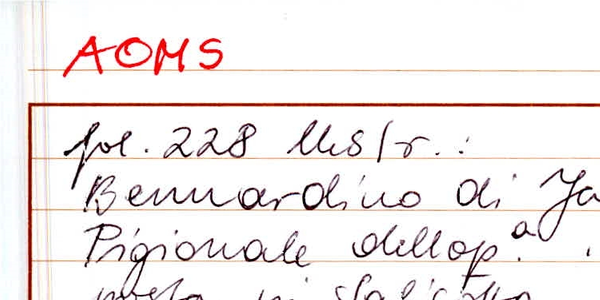 AOMS
fol. 228 lks/r.:
Bernnardino di Ja
Pigionale dellop.a